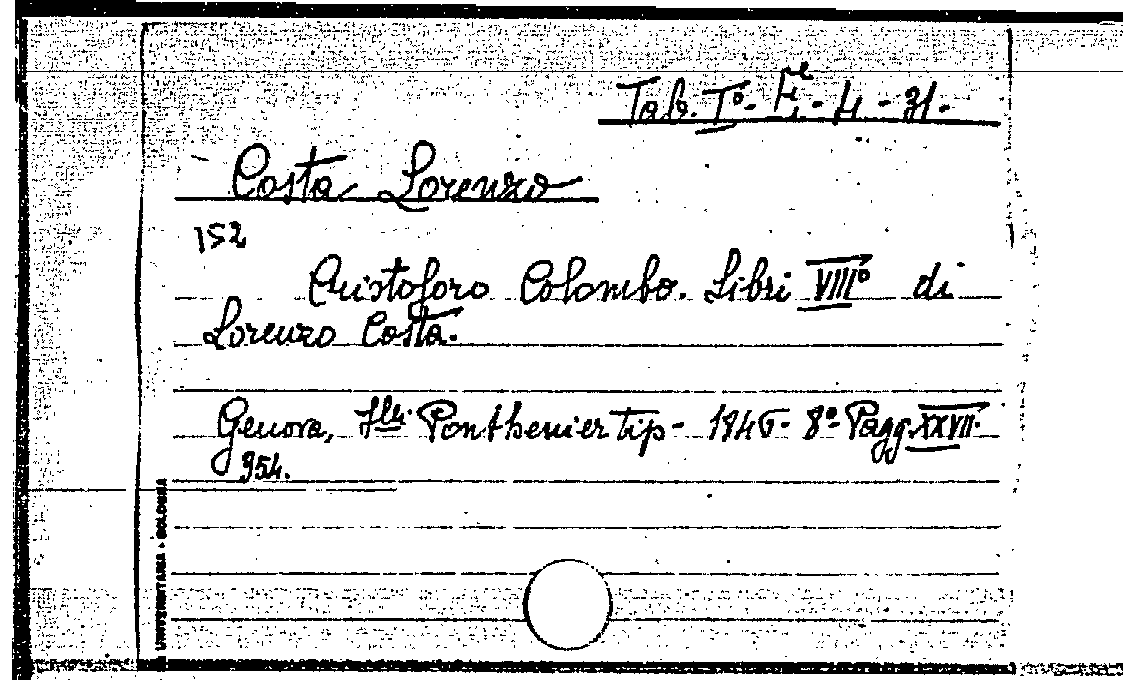 Tab. I°- F.e - 4 - 31.
Costa Lorenzo
152
Cristoforo Colombo. Libri VIII° di
Lorenzo Costa.
Genova, Flli Ponthenier tip- 1846- 8°- Pagg. XXVII.
954.
UNIVERSITARIA - BOLOGNA